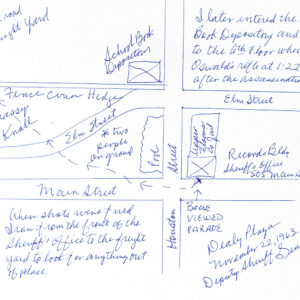 road
ight Yard
School Book
Depository
I later entered the
Book Depository and
to the 6th Floor wher
Oswald's rifle at 1:22
after the assassinati
Fence Cover Hedge
rassy
Knoll
Elm Street
Elm Street
* two
people
on ground
Pool
Street
Co Jail
Records Bldg
Sheriff's Office
505 Main S
Main Street
When shots were fired
I ran from the front of the
Sheriff's office to the freight
yard to look for anything out
of place.
Houston
BOONE
VIEWED
PARADE
Dealy Plaza
November 22, 1963
Deputy Sheriff